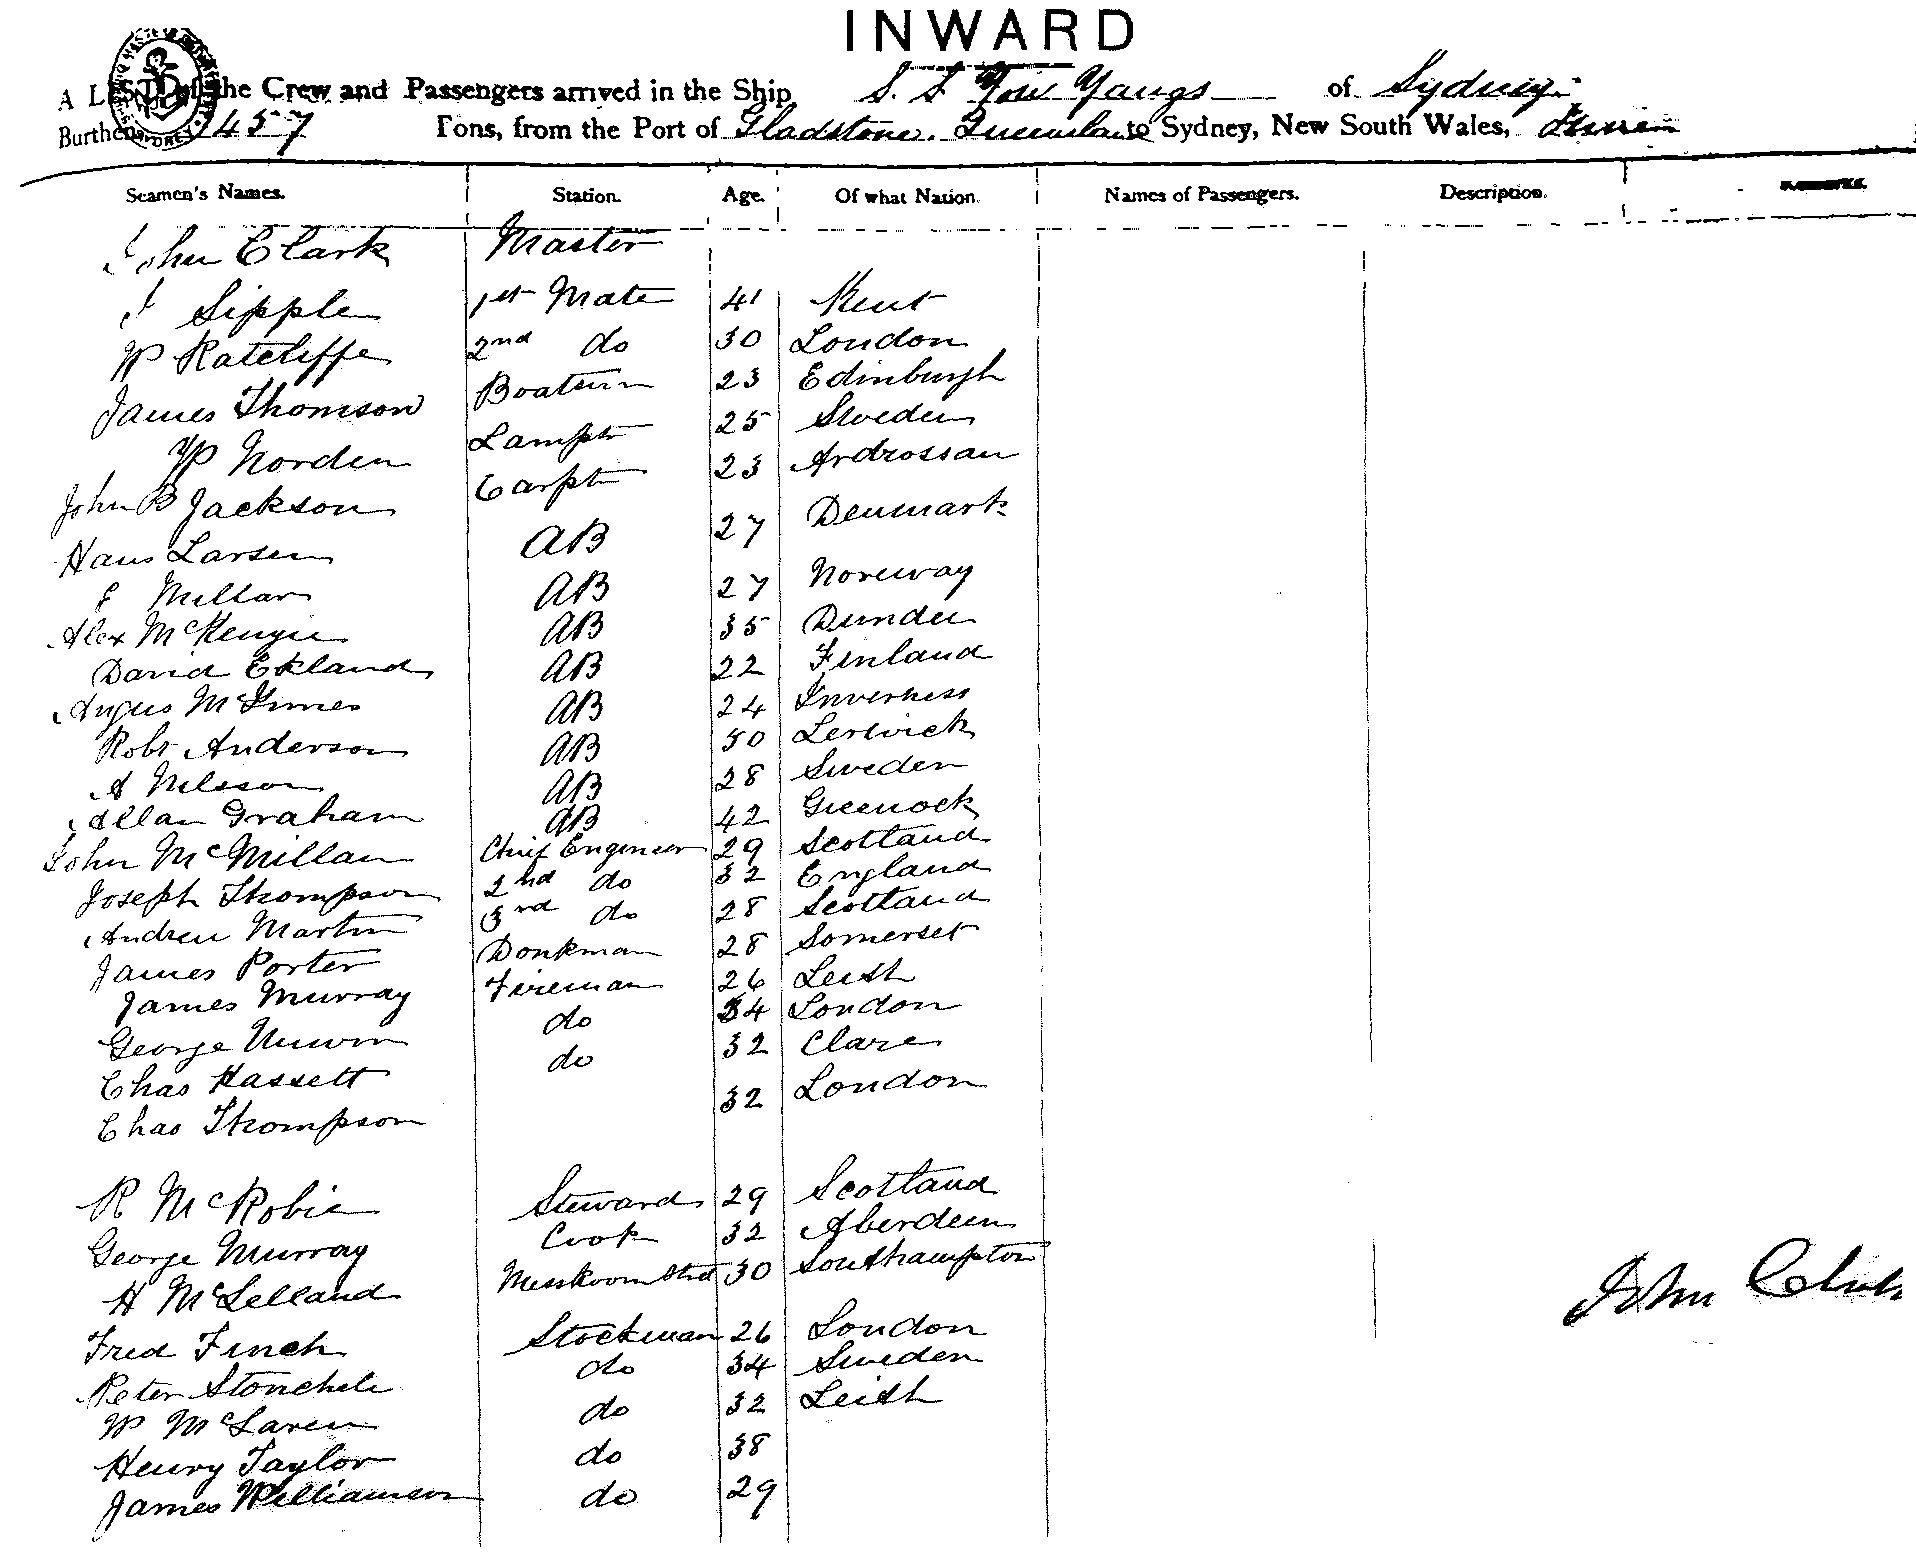 INWARD
A LIST of the Crew and Passengers arrived in the Ship S. S. You Yangs of Sydney
Burthen 457 Tons, from the Port of Gladstone. Queensland to Sydney, New South Wales,
Seamen's Names. Station. Age. Of what Nation. Names of Passengers. Description. REMARKS.
John Clark Master
J Sipple 1st Mate 41 Kent
W Ratcliffe 2nd do 30 London
James Thomson Boatswn 23 Edinburgh
W Norden Lampt 25 Sweden
John B Jackson Carpt 23 Ardrossan
Hans Larsen AB 27 Denmark
Millar AB 27 Norway
Alex McKenzie AB 35 Dundee
David Ekland AB 22 Finland
Angus McInnes AB 24 Inverness
Robt Anderson AB 30 Lerwick
A Nilsson AB 28 Sweden
Allan Graham AB 42 Greenock
John McMillan Chief Engineer 29 Scotland
Joseph Thompson 2nd do 32 England
Andrew Martin 3rd do 28 Scotland
James Porter Donkman 28 Somerset
James Murray Fireman 26 Leith
George Unwin do 34 London
Chas Hassett do 32 Clare
Chas Thompson 32 London
R McRobie Steward 29 Scotland
George Murray Cook 32 Aberdeen
H McLelland MessRoom Strd 30 Southampton
John Clark
Fred Finch Stockman 26 London
Peter do 34 Sweden
W McLaren do 32 Leith
Henry Taylor do 38
James Williamson do 29